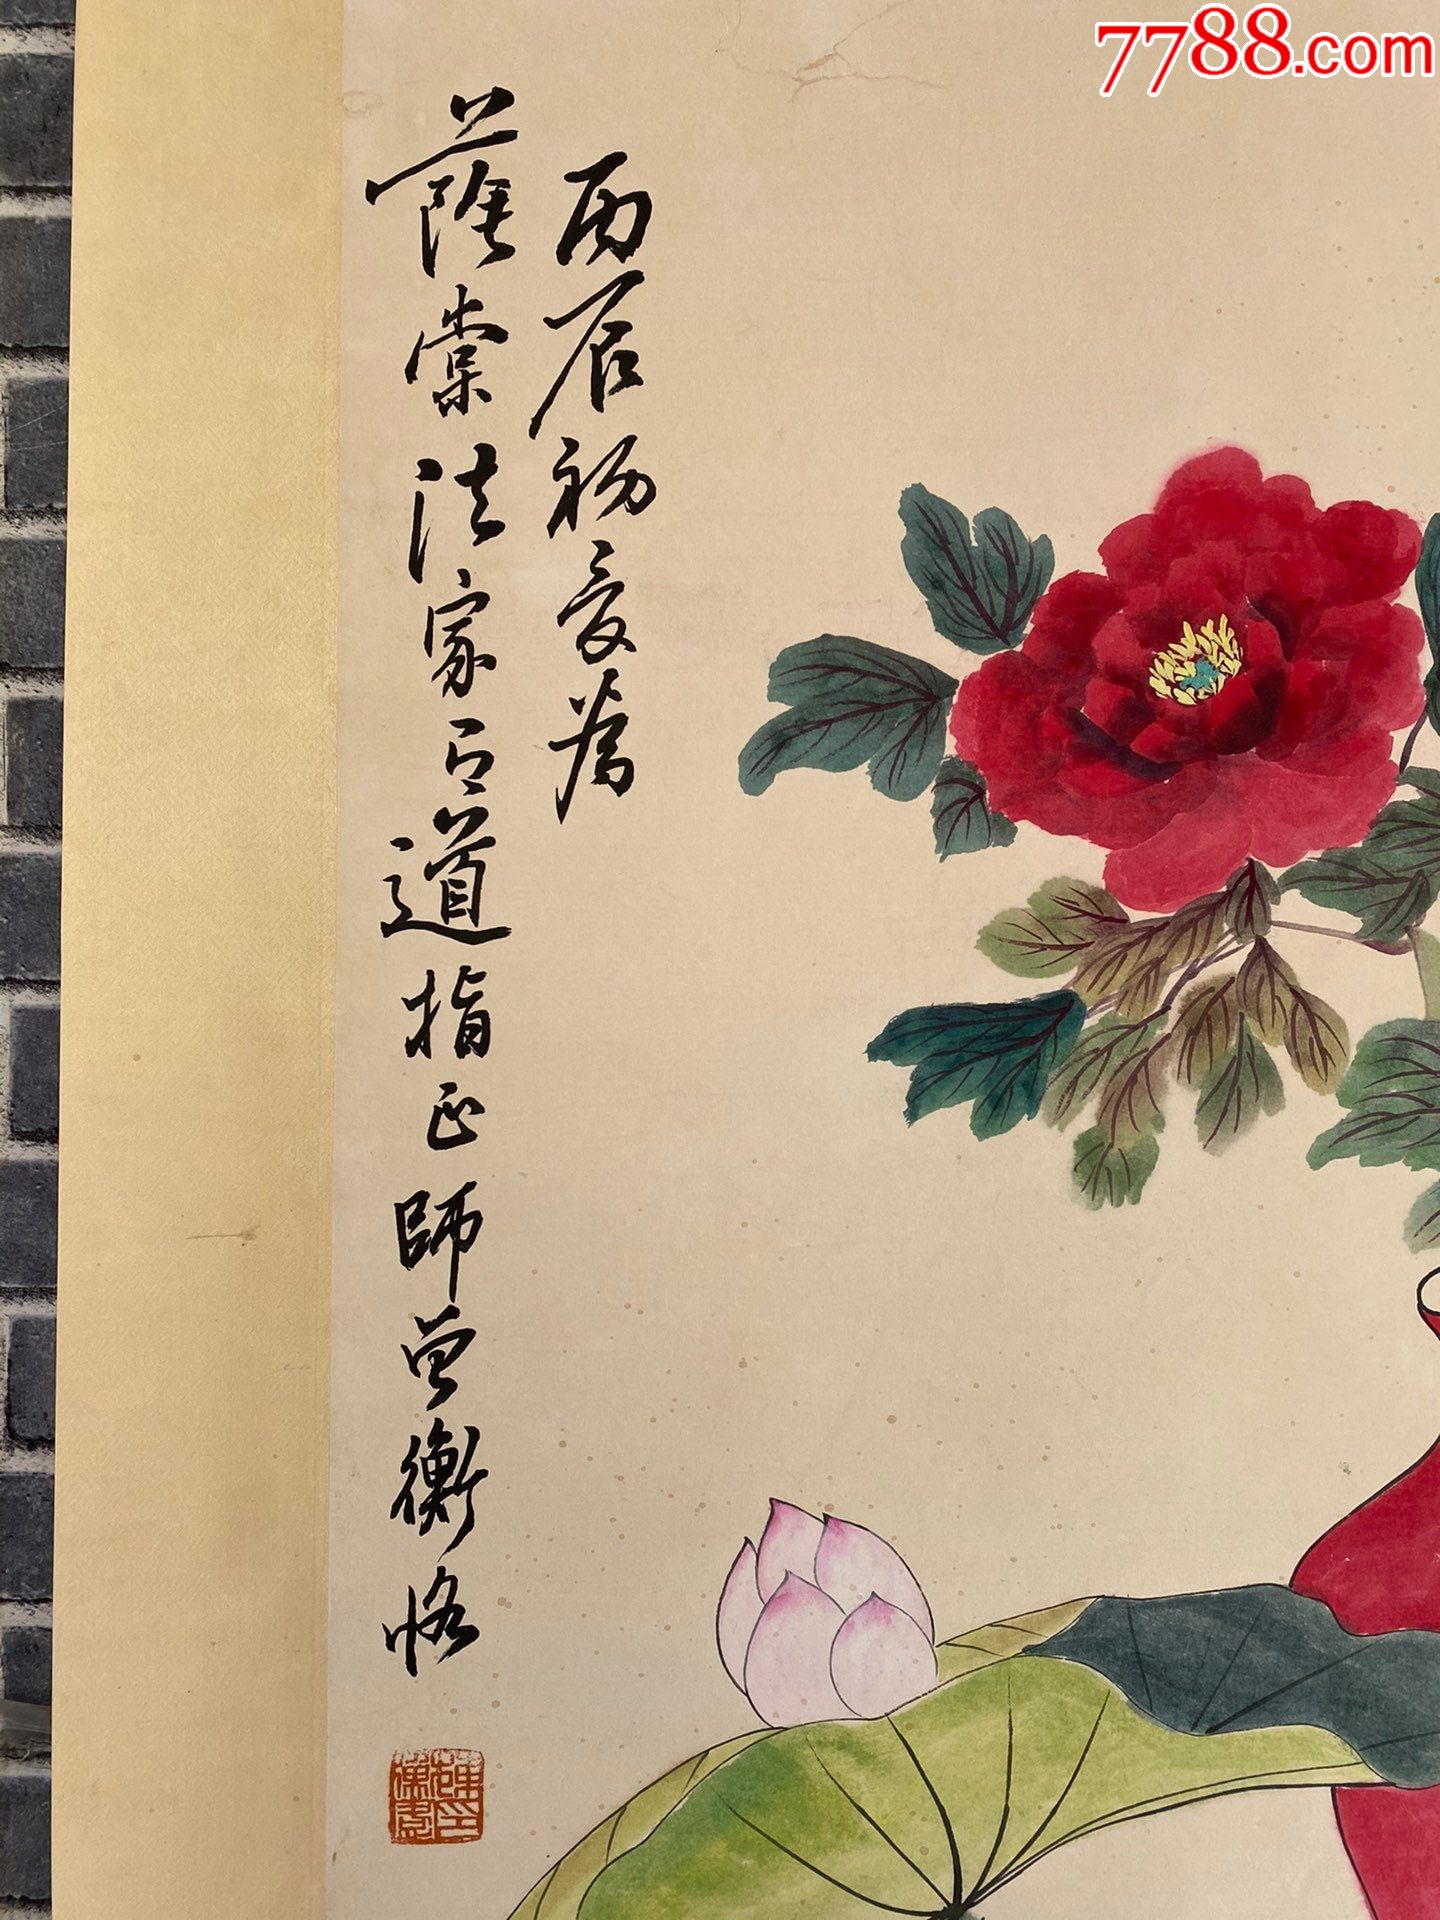 7788.com
丙辰初夏为
蔭棠法家
道指正師曾衡恪